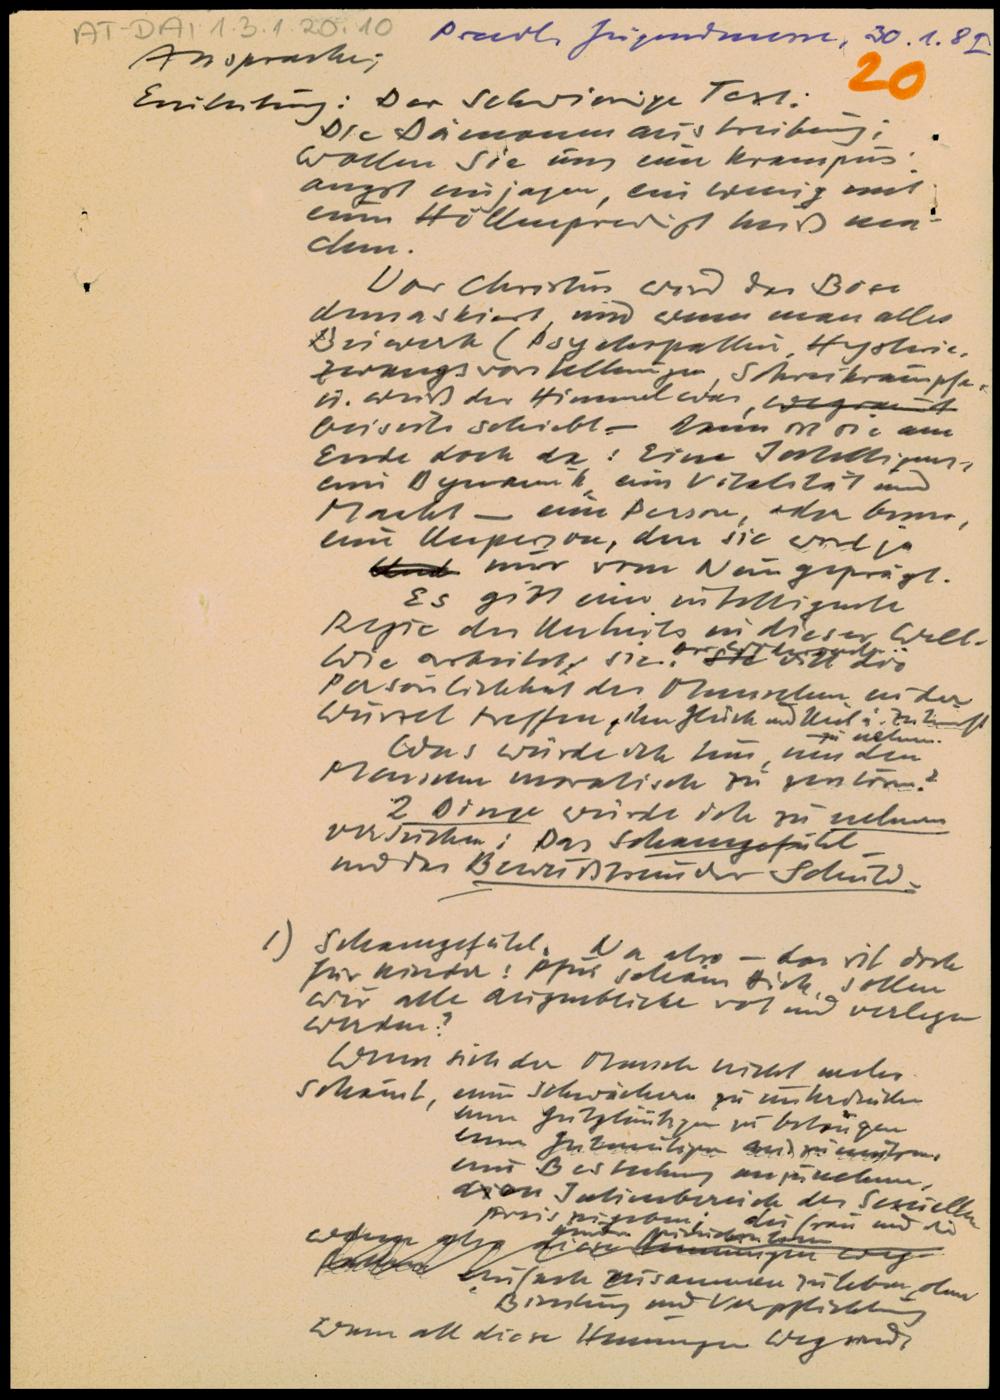 AT-DAI 1.3.1.20.10
Pradl, Jugendmesse, 30.1.82
20
Ansprache;
Einleitung: Der schwierige Text:
Die Dämonenaustreibung;
Wollen Sie uns eine Krampus-
angst einjagen, ein wenig mit
einer Höllenpredigt heiß ma-
chen.
Vor Christus wird das Böse
demaskiert, und wenn man alles
Beiwerk (Psychopathie, Hysterie,
Zwangsvorstellungen, Schreikrämpfe,
u. weiß der Himmel was, wegräumt
beiseite schiebt – dann ist sie am
Ende doch da: Eine Intelligenz,
eine Dynamik, eine Vitalität und
Macht – eine Person, oder besser,
eine Unperson, denn sie wird ja
Und nur vom Nein geprägt.
Es gibt eine intelligente
Regie des Unheils in dieser Welt.
Wie arbeitet sie? Sie will die
Persönlichkeit des Menschen in der
Wurzel treffen, ihm Glück und Heil u. Zukunft
zu nehmen.
Was würde ich tun, um den
Menschen moralisch zu zerstören?
2 Dinge würde ich zu nehmen
versuchen: Das Schamgefühl
und das Bewußtsein der Schuld.
1) Schamgefühl. Na also – das ist doch
für Kinder: Pfui schäm dich, sollen
wir alle Augenblicke rot und verlegen
werden?
Wenn sich der Mensch nicht mehr
schämt, einen Schwächern zu unterdrücken
einen Gutgläubigen zu betrügen
einen Gutmütigen auszunützen,
eine Bestechung anzunehmen,
den Intimbereich des Sexuellen
preiszugeben, die Frau und die
diese Hemmungen weg-
einfach zusammen zu leben, ohne
Bindung und Verpflichtung
wenn all diese Hemmungen weg sind,